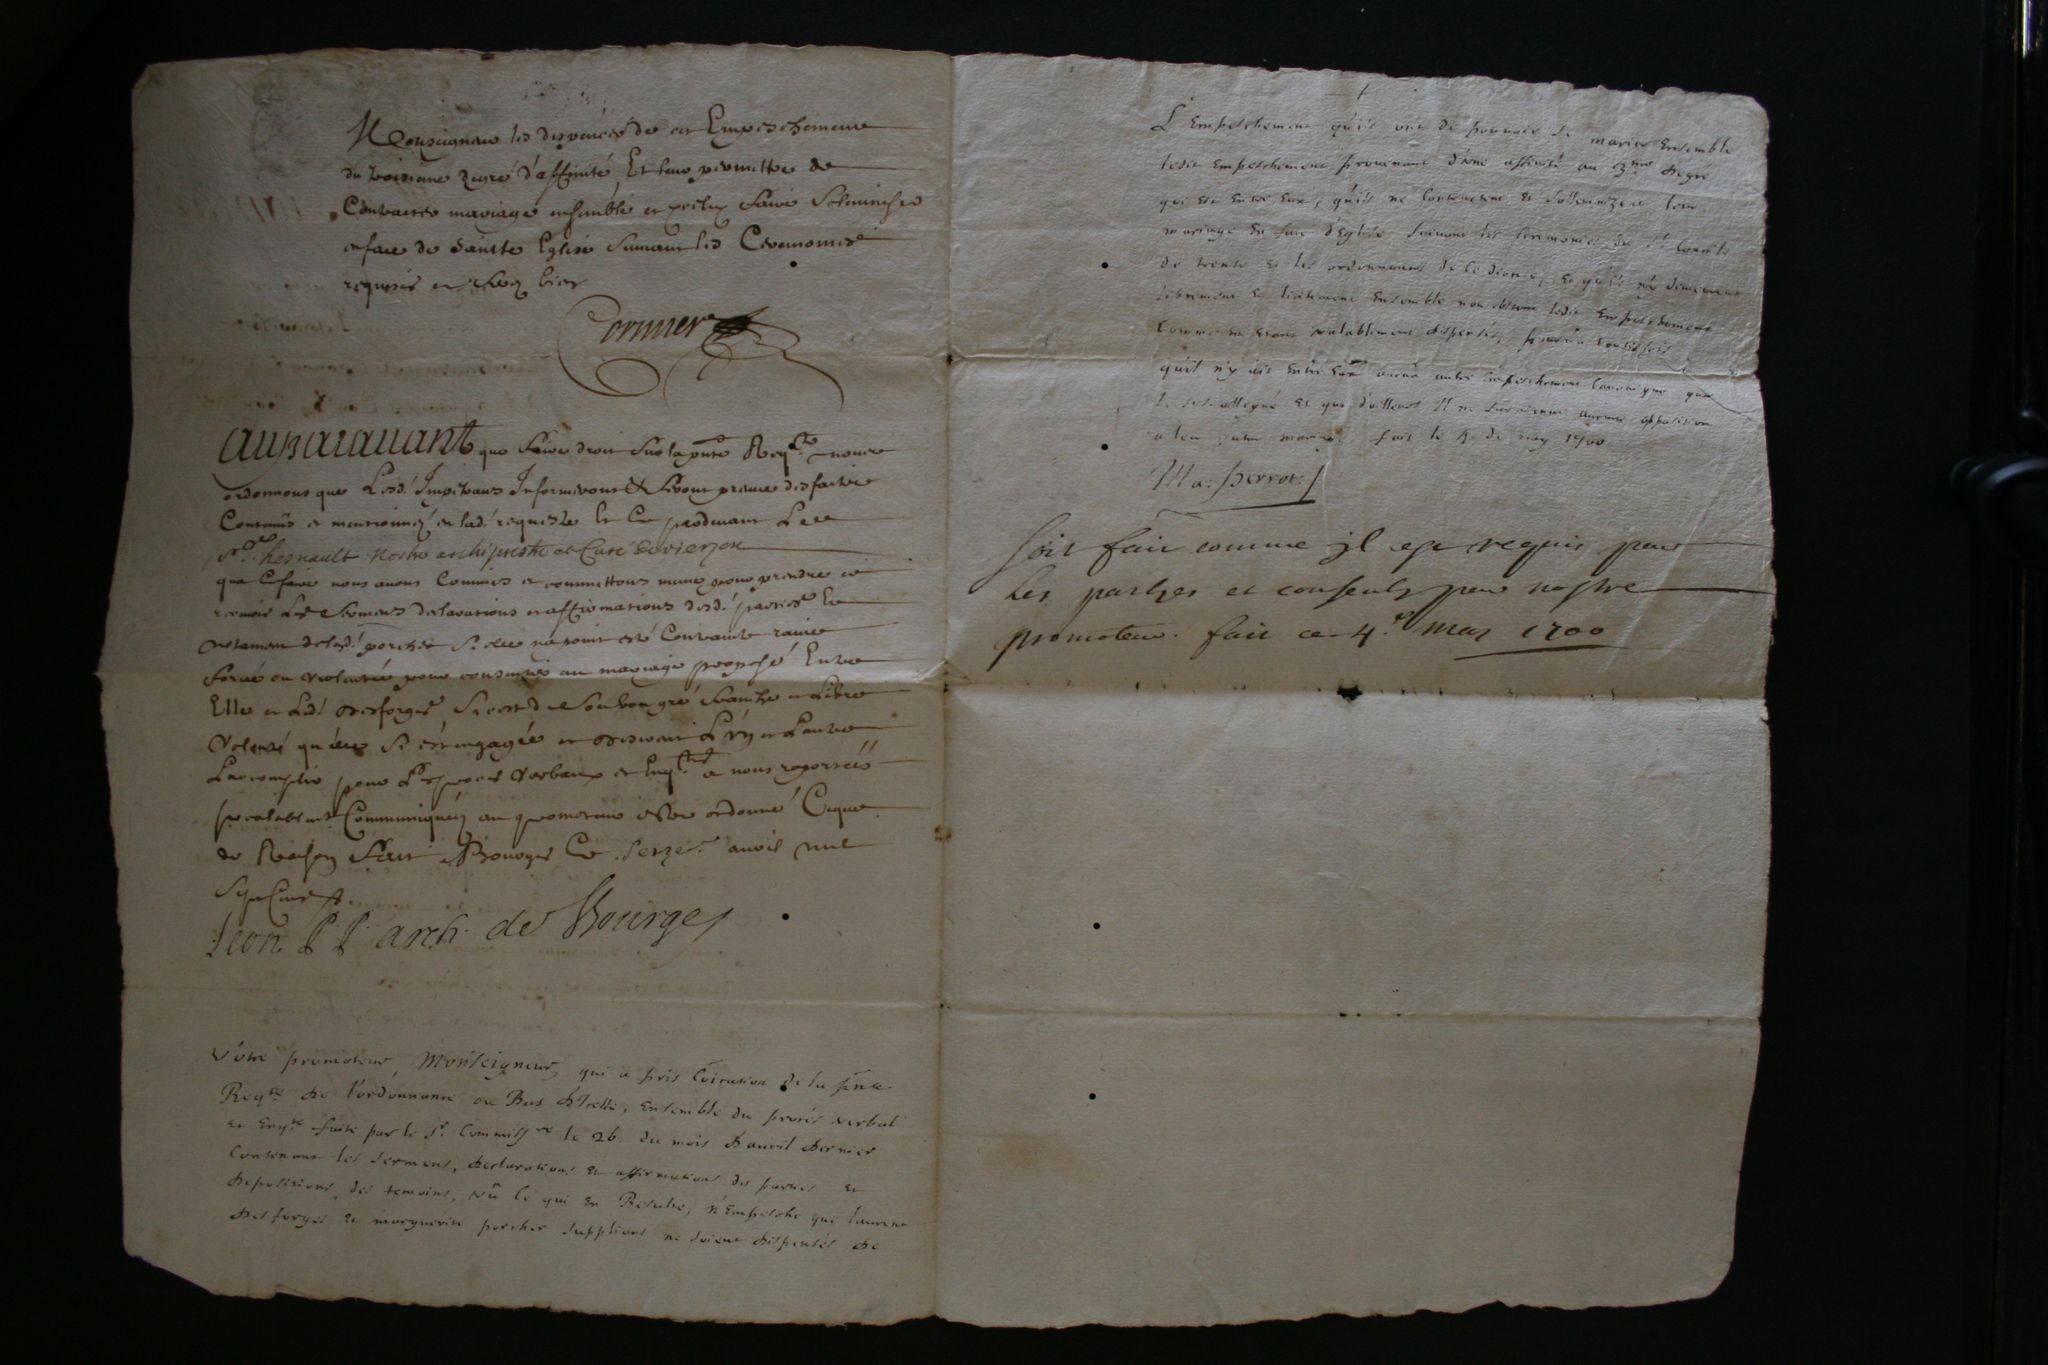 Monseigneur les dispencer de cet Empeschement
du troisiesme degré d'affinité, Et leur permettre de
Contracter mariage ensemble et icelluy faire Solemniser
en face de Sainte Eglise Suivant les Ceremonies
requises et ferez bien
Cormier
Auparavant que faire droit sur la pnte Reqte. nous
ordonnons que Lesd. Impetrans Informeront & feront preuve des faits
Contenus et mentionnez en lad. requeste Et Ce pardevant Le
Sr. hernault nostre archiprestre et Curé de vierzon
que Ce faire nous avons Commis et commettons mesme pour prendre et
recevoir Les Sermens declarations et affirmations desd. parties Et
notament de lad. porcher Sy elle n'a point esté Contrainte ravie
forcée ou violentée pour consentir au mariage proposé Entre
Elle et Led. desforges, Si c'est de Son bon gré franche et Libre
Volonté qu'elle S'est engagée et desirent L'un et L'autre
L'accomplir pour Les proces verbaux et Enqtes. a nous raportées
prealablemt. Communiquéz au promoteur estre ordonné Ce que
de Raison Fait a Bourges Ce Seize. avril mil
Sept Cens
Leon P. P. arch. de Bourges
Votre promoteur, Monseigneur, qui a pris Coïcation de la pnte
Reqte. de l'ordonnance au Bas d'Icelle, Ensemble du procés verbal
et Enqte. faite par le Sr. Commissre le 26. du mois d'avril dernier
Contenant les sermens, declarations et affirmations des parties et
depositions des temoins, vû ce qui en Resulte, n'Empesche que laurent
desforges et marguerite porcher supplians ne soient dispensés de
L'Empeschement qu'ils ont de pouvoir se marier Ensemble
ledit Empeschement provenant d'une affinité au 3me degré
qui est entre Eux, qu'ils ne Contractent et sollemnizent leur
mariage En face d'Eglise suivant les Ceremonies du St. Concile
de trente et les ordonnances de ce dioceze, et qu'ils ne demeurent
librement et licitement Ensemble non obstant ledit Empeschement
Comme en étant valablement dispensés, pourvû toutesfois
qu'il n'y ait entre Eux aucun autre Empeschement Canonique que
le susallegué et que d'ailleurs Il ne survienne aucune opposition
a leur futur mariage. fait le 4. de may 1700
Ma. Perrot.
Soit fait comme jl est requis par
les parties et consenty par nostre
promoteur. fait ce 4e. may 1700